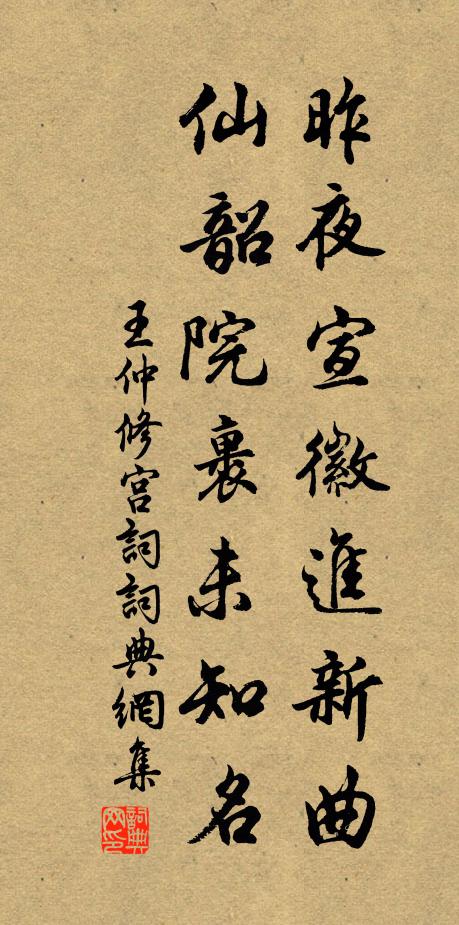 昨夜宣徽進新曲
仙韶院裏未知名
王仲修宮詞詞典網集
詞典網印